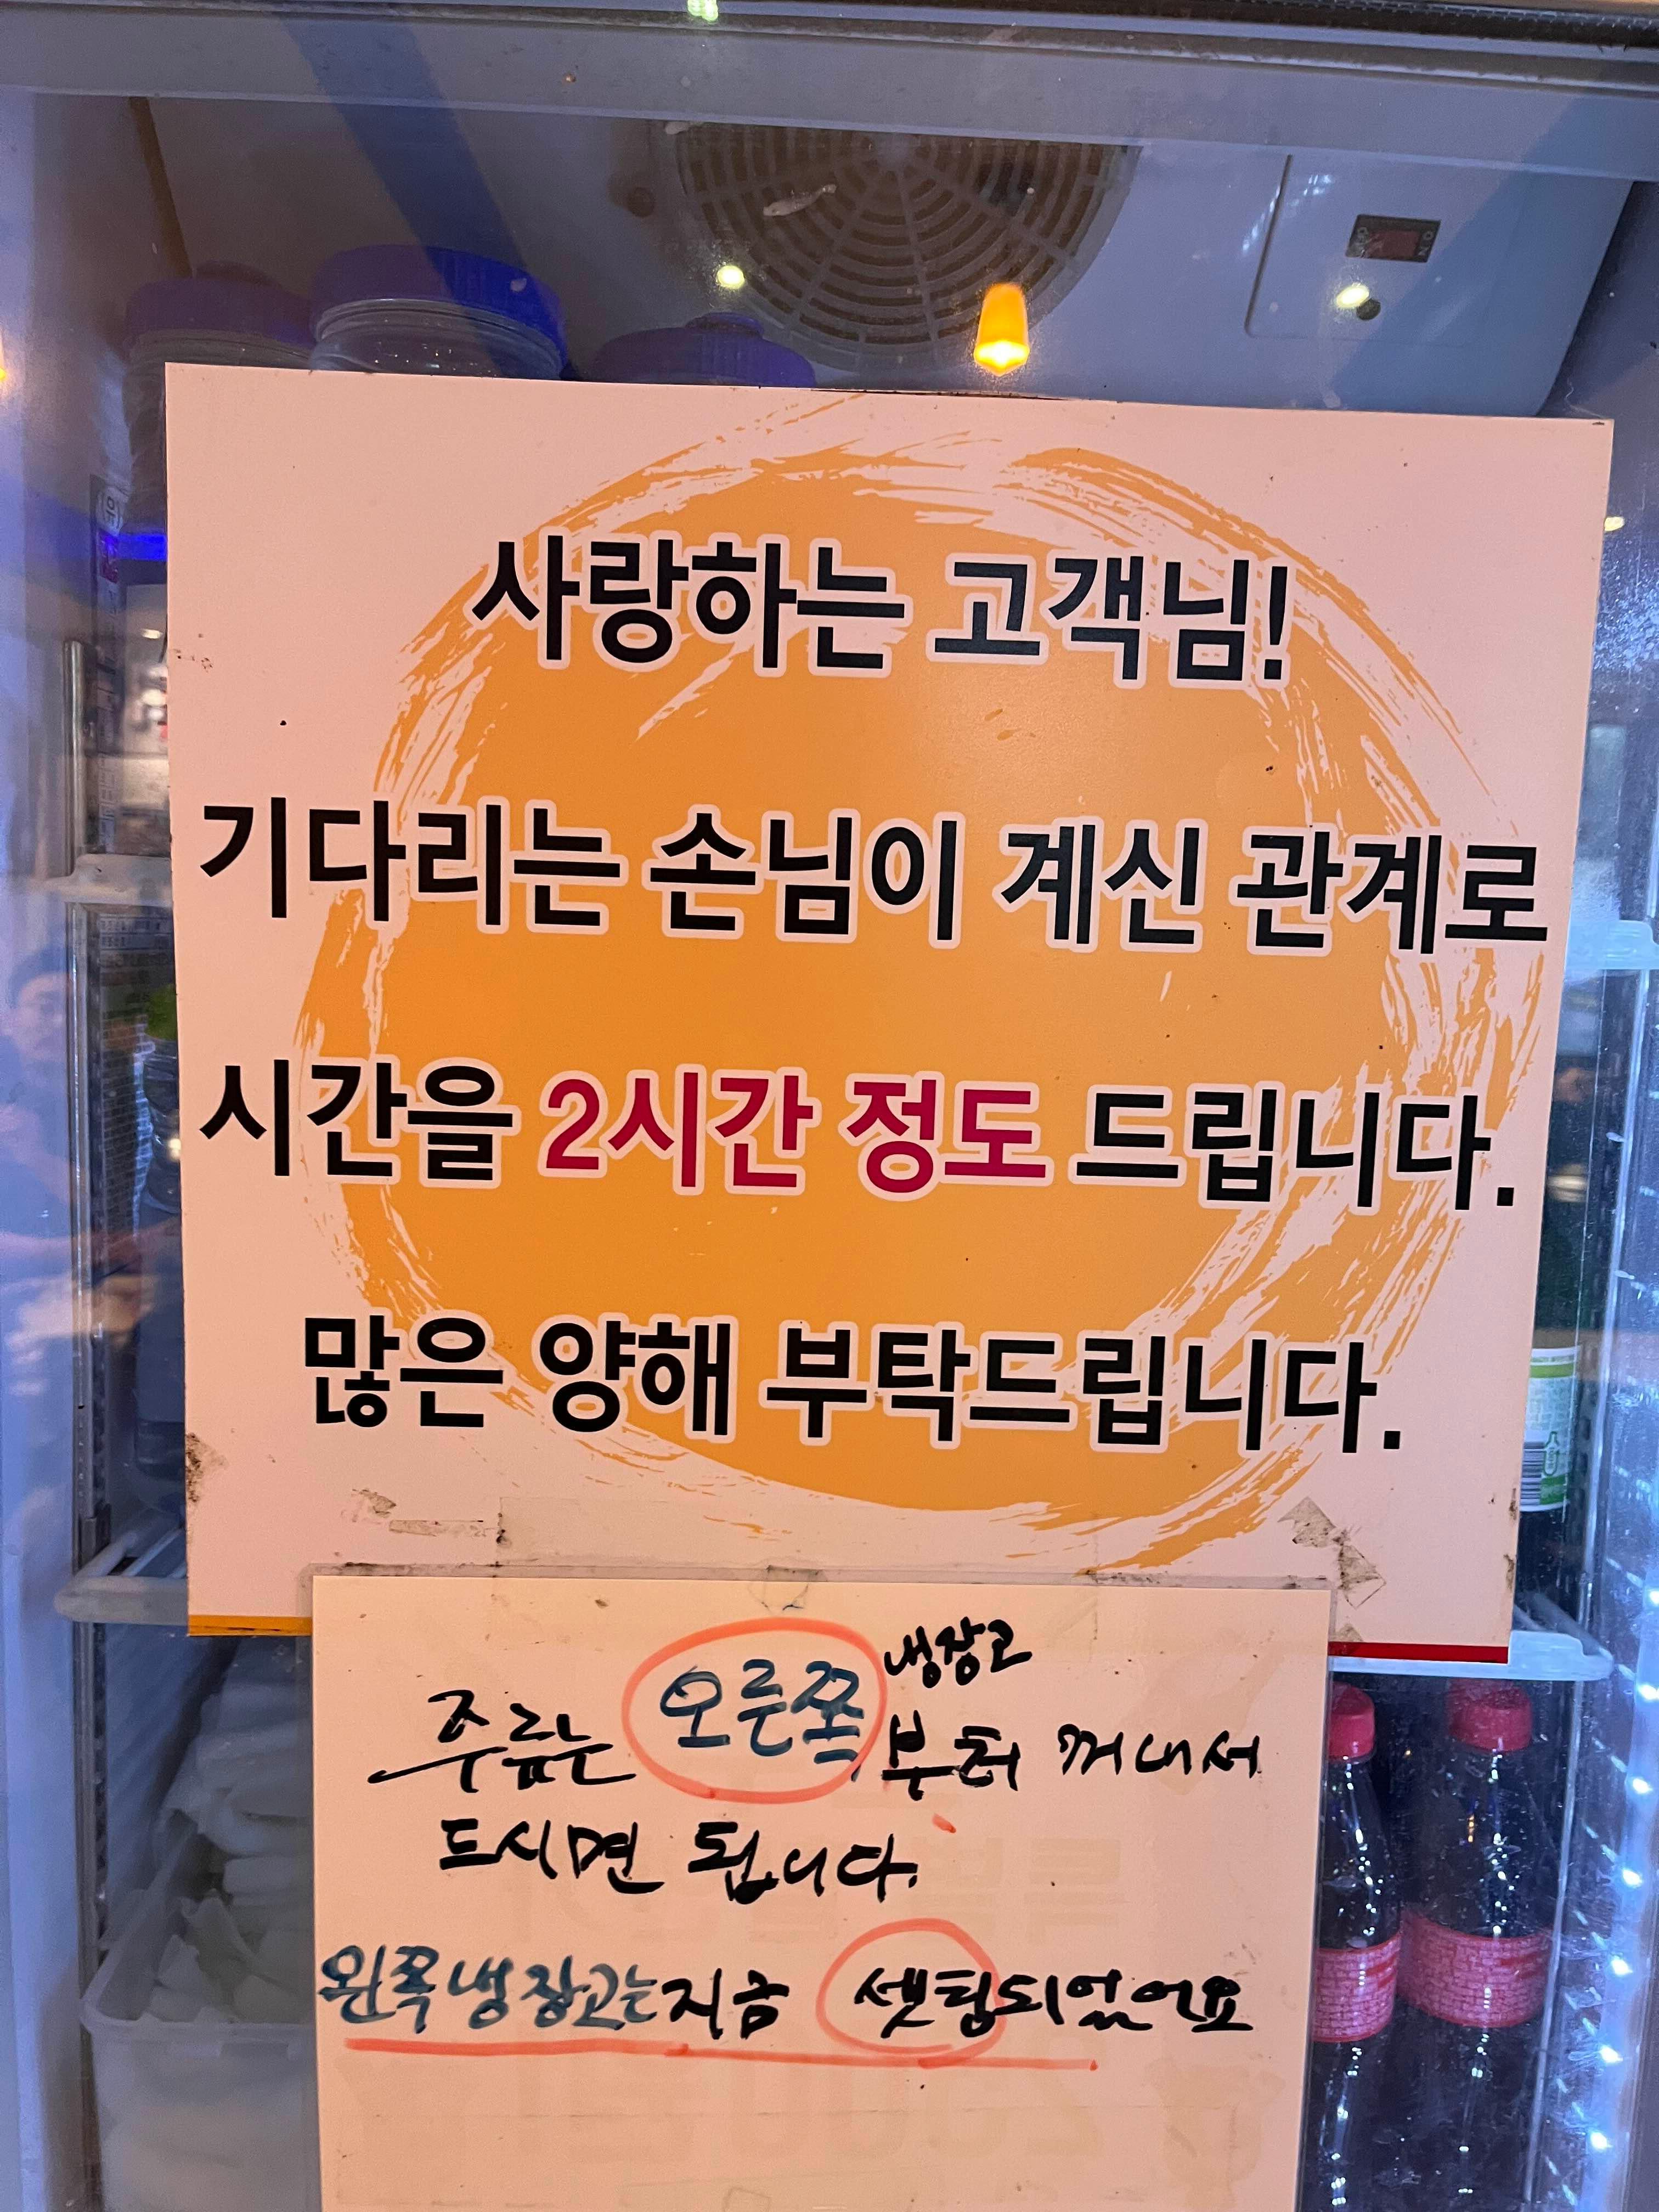 사랑하는 고객님!
기다리는 손님이 계신 관계로
시간을 2시간 정도 드립니다.
많은 양해 부탁드립니다.
냉장고
주류는 오른쪽 부터 꺼내서
드시면 됩니다.
왼쪽 냉장고는 지금 셋팅되었어요